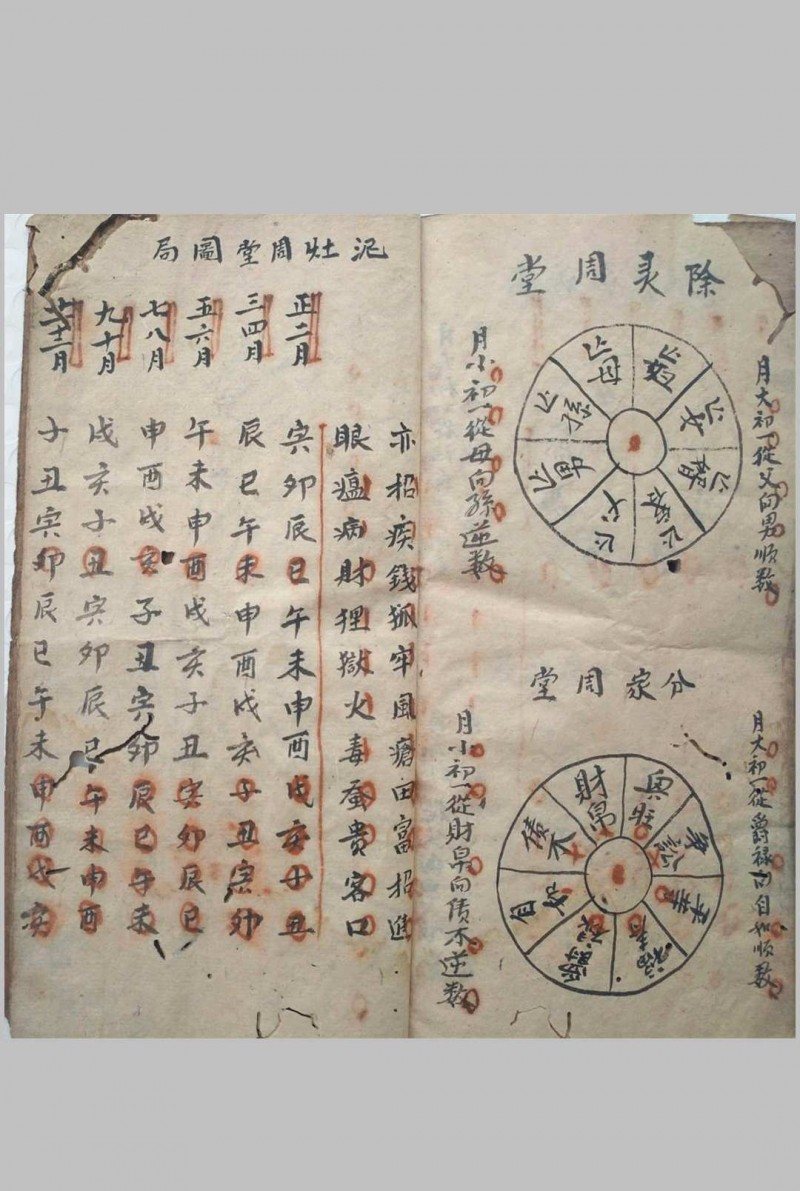 除灵周堂
月大初一從父向男順数
母
女
婿
客
父
男
孫
月小初一從母向孫逆数
分家周堂
月大初一從爵禄向自如順数
財帛
興旺
争訟
福寿
爵禄
自如
債不
月小初一從財帛向債不逆数
泥灶周堂圖局
亦招疾錢狐牢風瘡田富招進
眼瘟病財狸獄火毒蚕貴客口
正二月
寅卯辰巳午未申酉戌亥子丑
三四月
辰巳午未申酉戌亥子丑寅卯
五六月
午未申酉戌亥子丑寅卯辰巳
七八月
申酉戌亥子丑寅卯辰巳午未
九十月
戌亥子丑寅卯辰巳午未申酉
月
子丑寅卯辰巳午未申酉戌亥